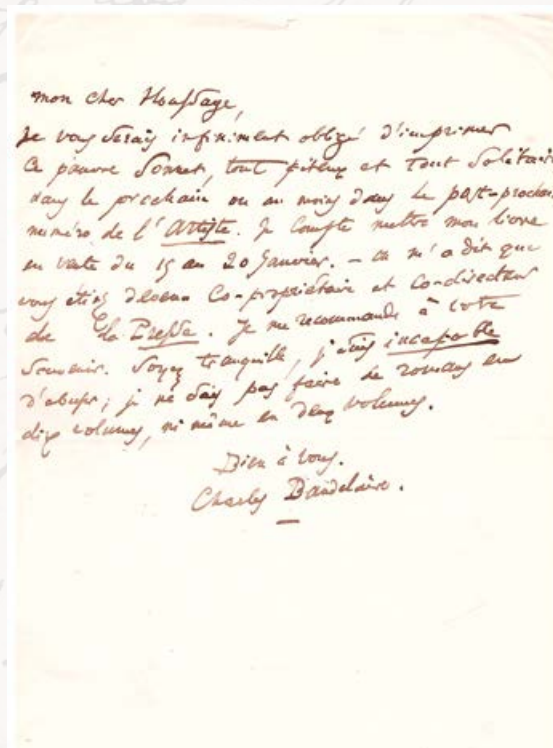 mon cher Houssaye,
Je vous serais infiniment obligé d'imprimer
ce pauvre Sonnet, tout piteux et tout Solitaire
dans le prochain ou au moins dans le post-prochain
numéro de l'Artiste. Je compte mettre mon livre
en vente du 15 au 20 Janvier. — on m'a dit que
vous étiez devenu Co-propriétaire et co-directeur
de la Presse. Je me recommande à votre
Souvenir. Soyez tranquille, j'suis incapable
d'abuser; je ne sais pas faire de romans en
dix volumes, ni même en deux volumes.
Bien à vous.
Charles Baudelaire.